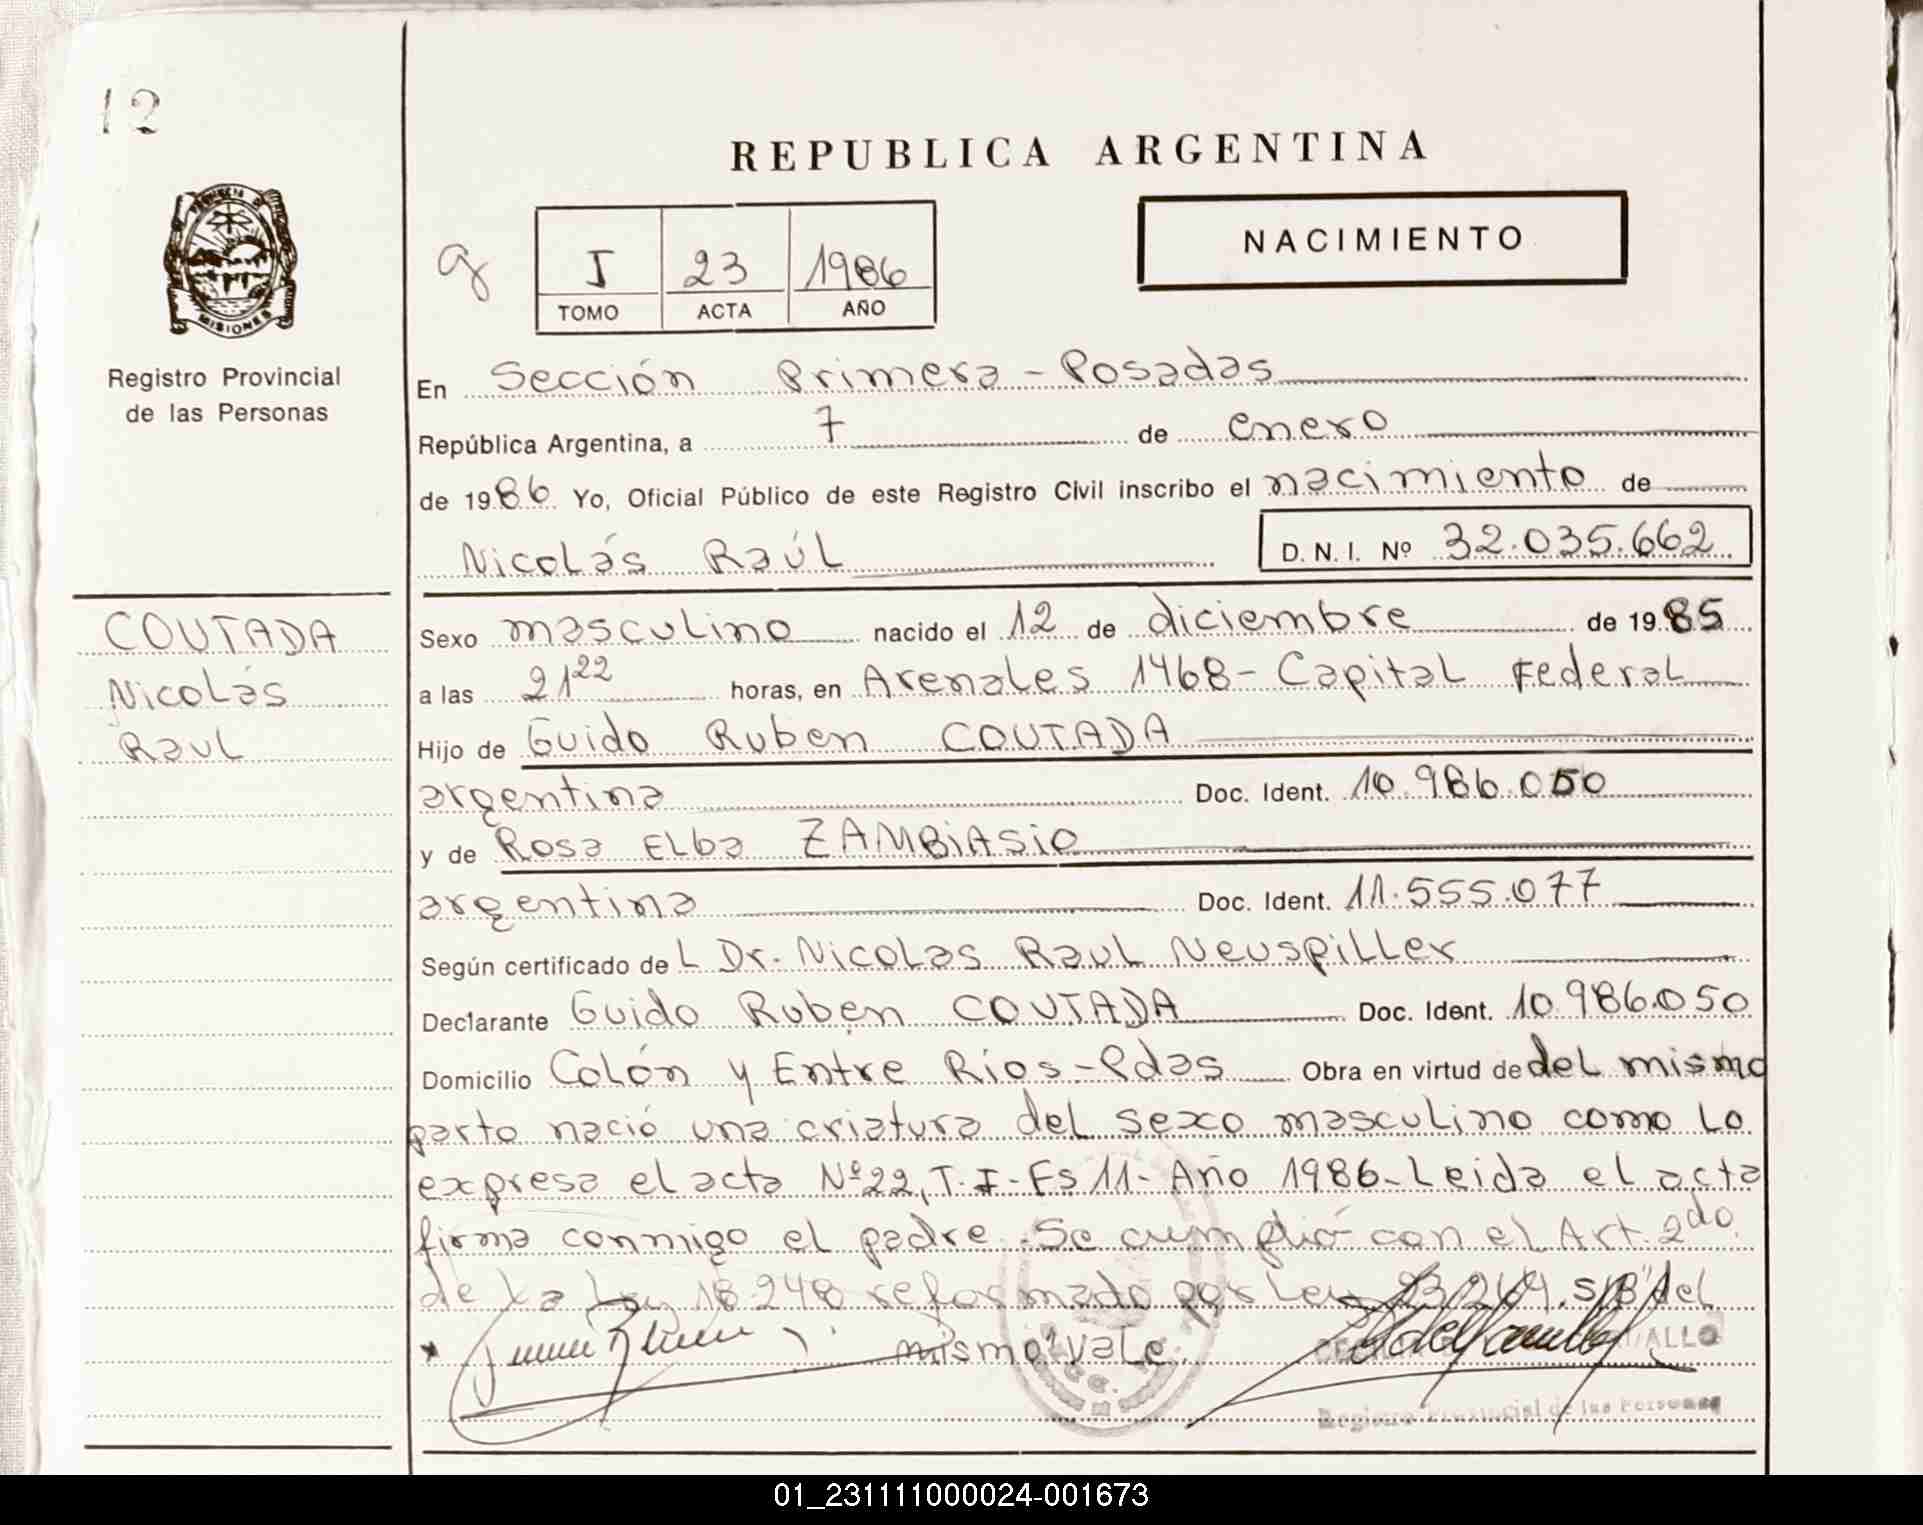 12
REPUBLICA ARGENTINA
PROVINCIA D
MISIONES
I 23 1986
TOMO ACTA AÑO
NACIMIENTO
Registro Provincial
de las Personas
En Sección Primera - Posadas
República Argentina, a 7 de enero
de 1986 Yo, Oficial Público de este Registro Civil inscribo el nacimiento de
Nicolás Raúl D.N.I. Nº 32.035.662
COUTADA
Nicolás
Raul
Sexo masculino nacido el 12 de diciembre de 1985
a las 21²² horas, en Arenales 1468 - Capital Federal
Hijo de Guido Ruben COUTADA
argentina Doc. Ident. 10.986.050
y de Rosa Elba ZAMBiASiO
argentina Doc. Ident. 11.555.077
Según certificado de L Dr. Nicolas Raul Neuspiller
Declarante Guido Ruben COUTADA Doc. Ident. 10.986.050
Domicilio Colón y Entre Ríos - Pdas Obra en virtud de del mismo
parto nació una criatura del sexo masculino como lo
expresa el acta Nº 22, T. I - Fs 11 - Año 1986 - Leida el acta
firma conmigo el padre. Se cumplió con el Art. 2do.
de la Ley 18.248 reformado por Ley 23.264. S/B "del
mismo" vale.
Registro Provincial de las Personas
01_231111000024-001673